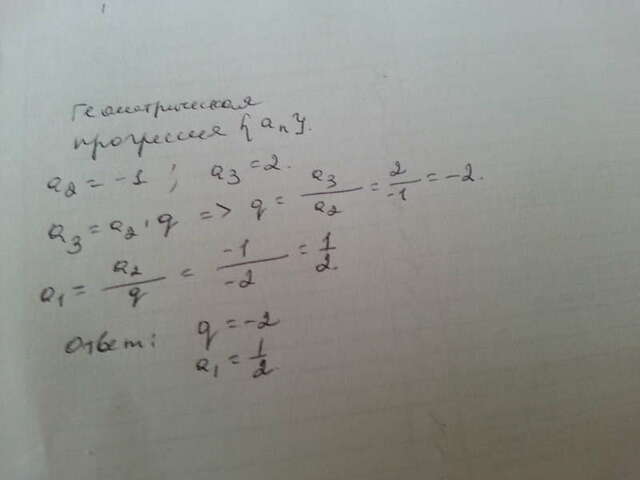 Геометрическая
прогрессия {aₙ}.
a₂ = -1 ; a₃ = 2.
a₃ = a₂ · q => q = a₃/a₂ = 2/-1 = -2.
a₁ = a₂/q = -1/-2 = 1/2.
Ответ: q = -2
a₁ = 1/2.